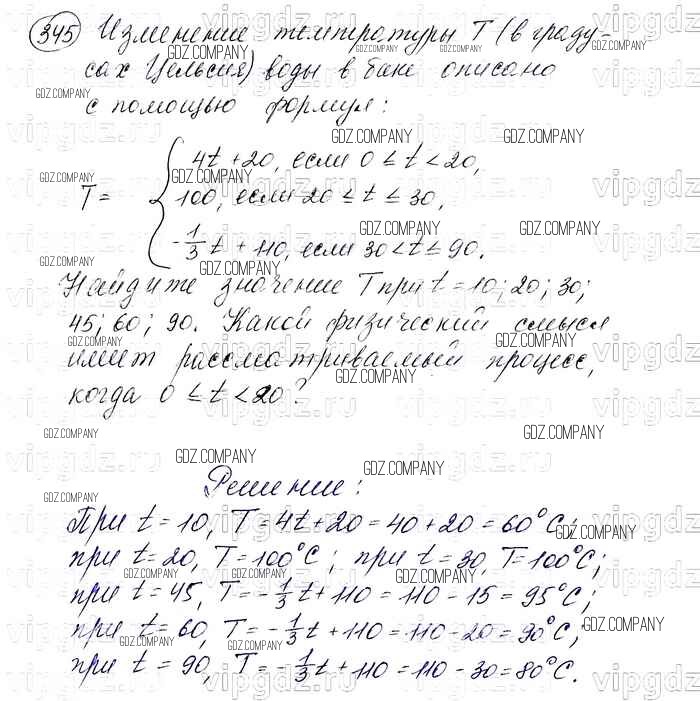 345 Изменение температуры T (в граду-
сах Цельсия) воды в баке описано
с помощью формул:
4t + 20, если 0 ≤ t < 20,
T = { 100, если 20 ≤ t ≤ 30,
-1/3 t + 110, если 30 < t ≤ 90.
Найдите значение T при t = 10; 20; 30;
45; 60; 90. Какой физический смысл
имеет рассматриваемый процесс,
когда 0 ≤ t < 20?
Решение:
При t = 10, T = 4t + 20 = 40 + 20 = 60°C;
при t = 20, T = 100°C; при t = 30, T = 100°C;
при t = 45, T = -1/3 t + 110 = 110 - 15 = 95°C;
при t = 60, T = -1/3 t + 110 = 110 - 20 = 90°C;
при t = 90, T = -1/3 t + 110 = 110 - 30 = 80°C.
GDZ.COMPANY
vipgdz.ru